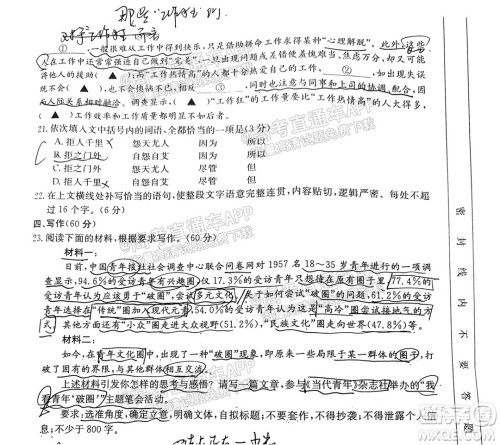 那些"工作狂"们
对于工作狂而言
①，一般很难从工作中得到快乐，只是借助拼命工作求得某种"心理解脱"。此外，这些
人在工作中还常常强迫自己做到"完善"，一旦出现问题或差错便羞愧难当、焦虑万分，却又
将他人的援助（▲）；而"工作热情高"的人都十分热爱自己的工作，②，如出现失误
既不会（▲），也不会懊恼不已，③，同时也注意与同事和上司的协调、配合，因
（▲）"工作狂"的工作量要比"工作热情高"的人大得多，
（▲）效率和工作质量都明显不如后者。
21. 依次填入文中括号内的词语，全都恰当的一项是(3分)
A. 拒人千里 怨天尤人 因为 所以
B. 拒之门外 自怨自艾 因为 所以
C. 拒之门外 怨天尤人 尽管 但是
D. 拒人千里 自怨自艾 尽管 但是
22. 在上文横线处补写恰当的语句，使整段文字语意完整连贯，内容贴切，逻辑严密。每处不超
过16个字。(6分)
四、写作(60分)
23. 阅读下面的材料，根据要求写作。(60分)
材料一：
日前，中国青年报社社会调查中心联合问卷网对1957名18～35岁青年进行的一项调
查显示，94.6%的受访青年有兴趣圈，仅17.3%的受访青年只想待在原有圈子里，77.4%的
受访青年认为应该勇于"破圈"，尝试多元文化。关于如何尝试"破圈"的问题，61.2%的受访
青年选择在"传统"圈加入现代元素，53.5%的受访青年认为这是"高冷"圈尝试接地气的方
式，其他方面还有"小众"圈走进大众视野(51.2%)、"民族文化"圈走向世界(47.8%)等。
材料二：
如今，在青年文化圈中，出现了一种"破圈"现象，即原来一些局限于某一群体的圈子，打
破了固有的界限，与其他群体相互交流。
上述材料引发你怎样的思考与感悟？请写一篇文章，参加《当代青年》杂志社举办的"我
看青年'破圈'"主题笔会活动。
要求：选准角度，确定立意，明确文体，自拟标题；不要套作，不得抄袭；不得泄露个人信
息；不少于800字。
密封线内不要答题